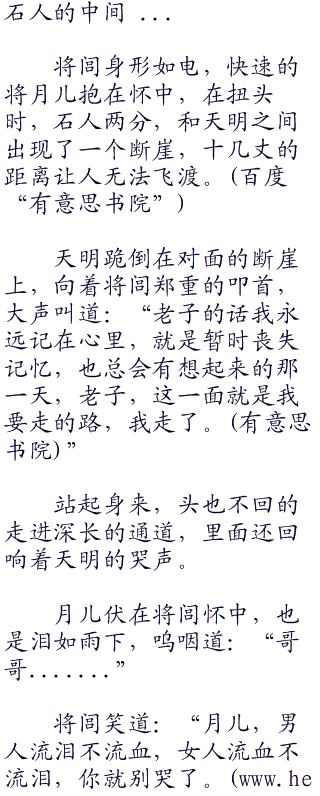 石人的中间 ...
将闾身形如电，快速的
将月儿抱在怀中，在扭头
时，石人两分，和天明之间
出现了一个断崖，十几丈的
距离让人无法飞渡。(百度
“有意思书院”)
天明跪倒在对面的断崖
上，向着将闾郑重的叩首，
大声叫道：“老子的话我永
远记在心里，就是暂时丧失
记忆，也总会有想起来的那
一天，老子，这一面就是我
要走的路，我走了。(有意思
书院)”
站起身来，头也不回的
走进深长的通道，里面还回
响着天明的哭声。
月儿伏在将闾怀中，也
是泪如雨下，呜咽道：“哥
哥.......”
将闾笑道：“月儿，男
人流泪不流血，女人流血不
流泪，你就别哭了。(www.he